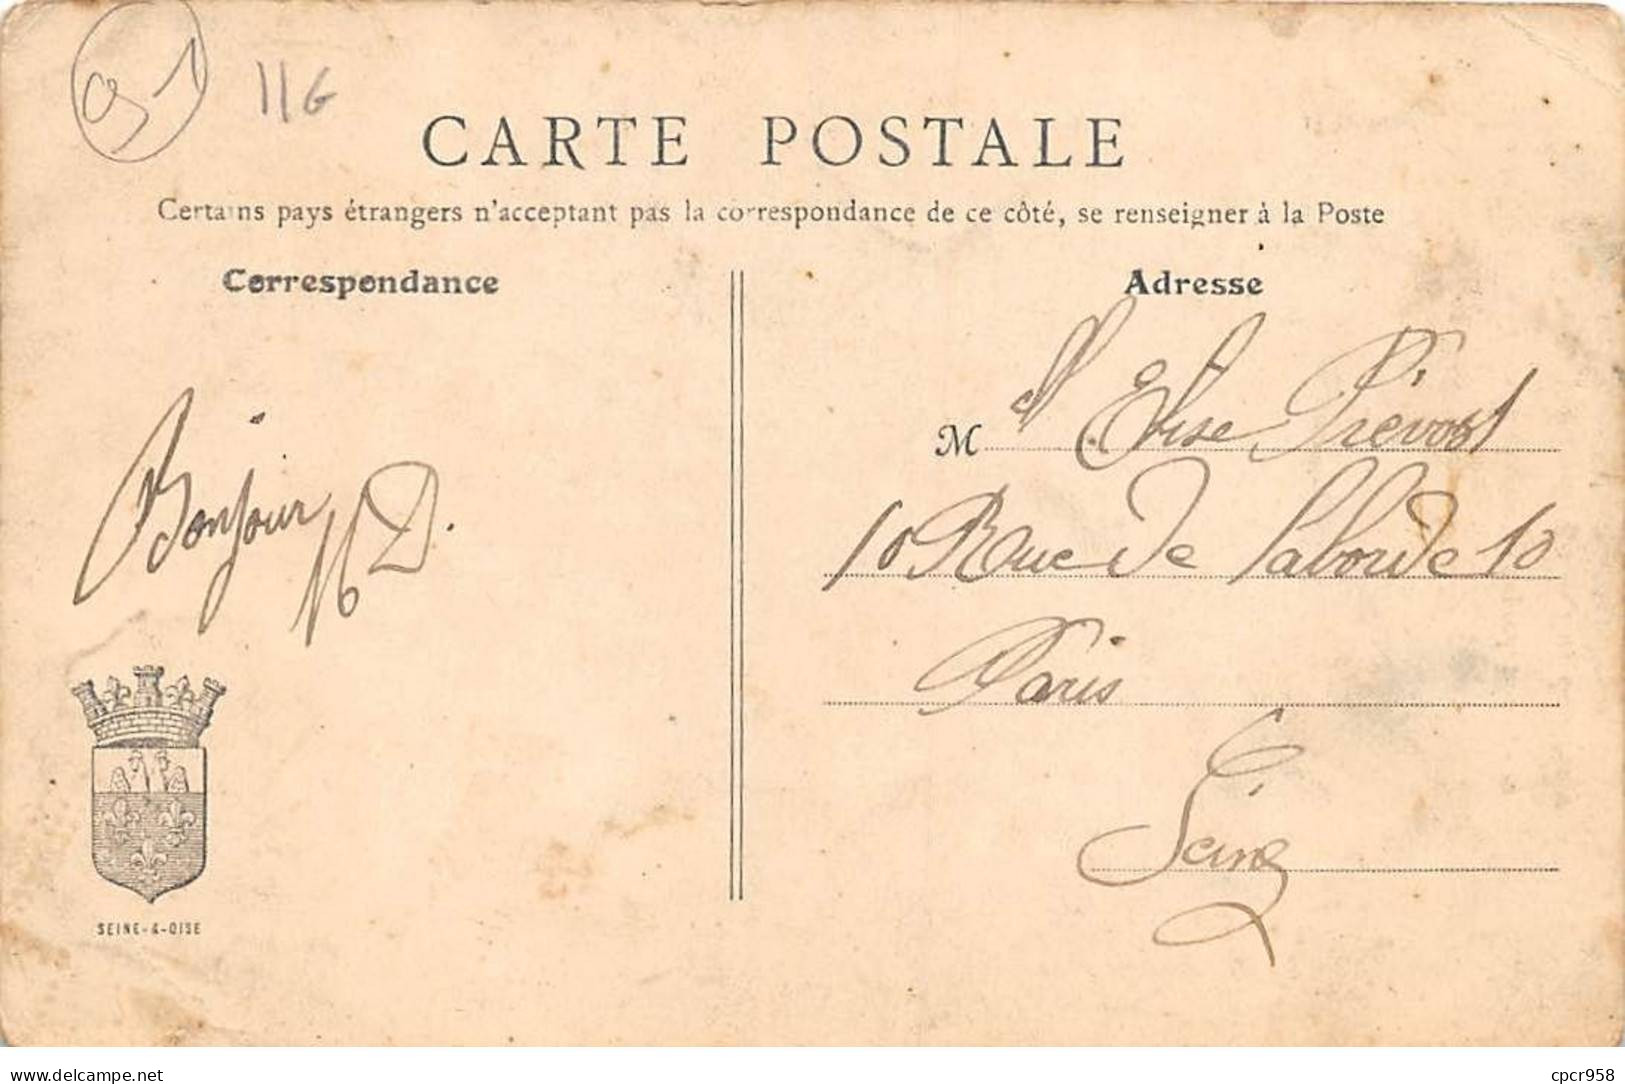 91 116
CARTE POSTALE
Certains pays étrangers n'acceptant pas la correspondance de ce côté, se renseigner à la Poste
Correspondance
Adresse
M elle Elise Prévost
10 Rue de Laborde 10
Paris
Seine
Bonjour
D.
SEINE-&-OISE
www.delcampe.net
cpcr958